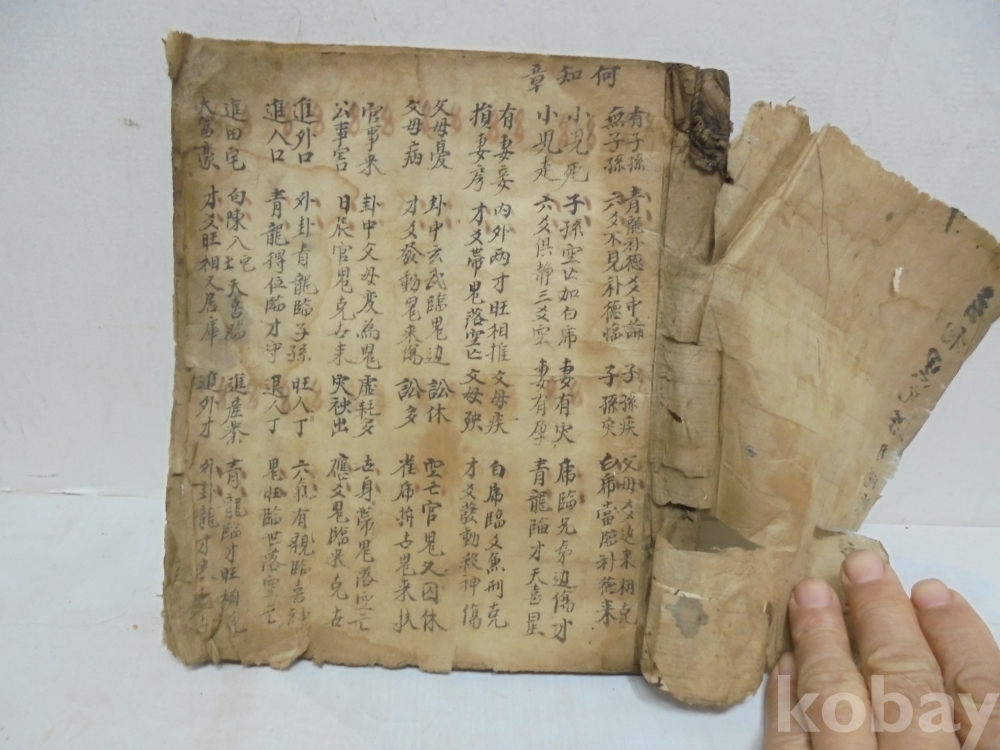 何知章
有子孫 青龍卦德爻中論 子孫疾 父母爻边来相克
無子孫 六爻不見卦德临 子孫灾 白席當臨卦德来
小児死 子孫空亡加白席 妻有灾 席臨兄弟边傷才
小児走 六爻俱静三爻空 妻有孕 青龍臨才天喜星
有妻妾 内外两才旺相推 父母疾 白席臨爻兼刑克
損妻房 才爻帯鬼落空亡 父母殃 才爻發動殺神傷
父母憂 卦中玄武臨鬼边 訟休 空亡官鬼又囚休
父母病 才爻發動鬼来傷 訟多 雀席持占鬼来扶
官事来 卦中父母变為鬼 虚耗多 占身帶鬼落空亡
公事害 日辰官鬼克占来 灾殃出 應爻鬼臨来克占
進外口 外卦青龍臨子孫 旺人丁 六爻有親臨
進人口 青龍得位臨才守 退人丁 鬼旺臨世落空亡
進田宅 勾陳入土宅天喜臨 進產業 青龍臨才旺相
大富豪 才爻旺相又居庫 進外才 外卦龍才
kobay